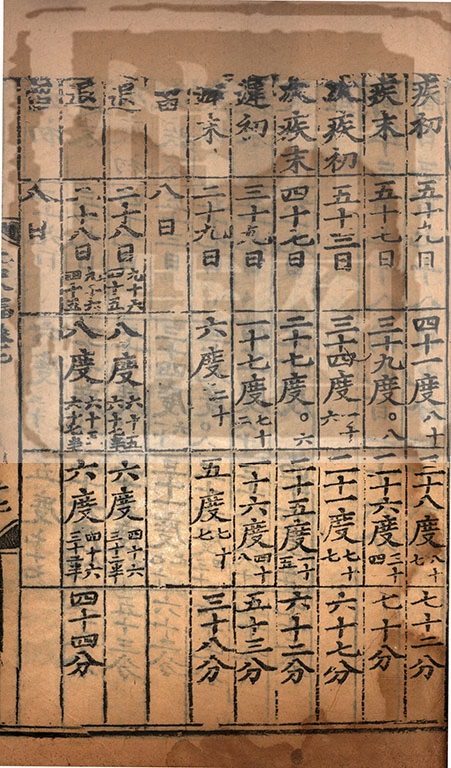 疾初 五十九日 四十一度八十 三十八度八十七 七十二分
疾末 五十七日 三十九度〇八 二十六度三十四 七十分
次疾初 五十三日 三十四度一十六 二十一度七十七 六十七分
次疾末 四十七日 二十七度〇六 二十五度一十五 六十二分
遲初 三十九日 一十七度七十二 一十六度四十八 五十三分
遲末 二十九日 六度二十 五度七十七 三十八分
留 八日
退 二十八日九十六四十五 八度六十五六十七半 六度四十六三十二半
退 二十八日九十六四十五 八度六十五六十七半 六度四十六三十二半 四十四分
八日